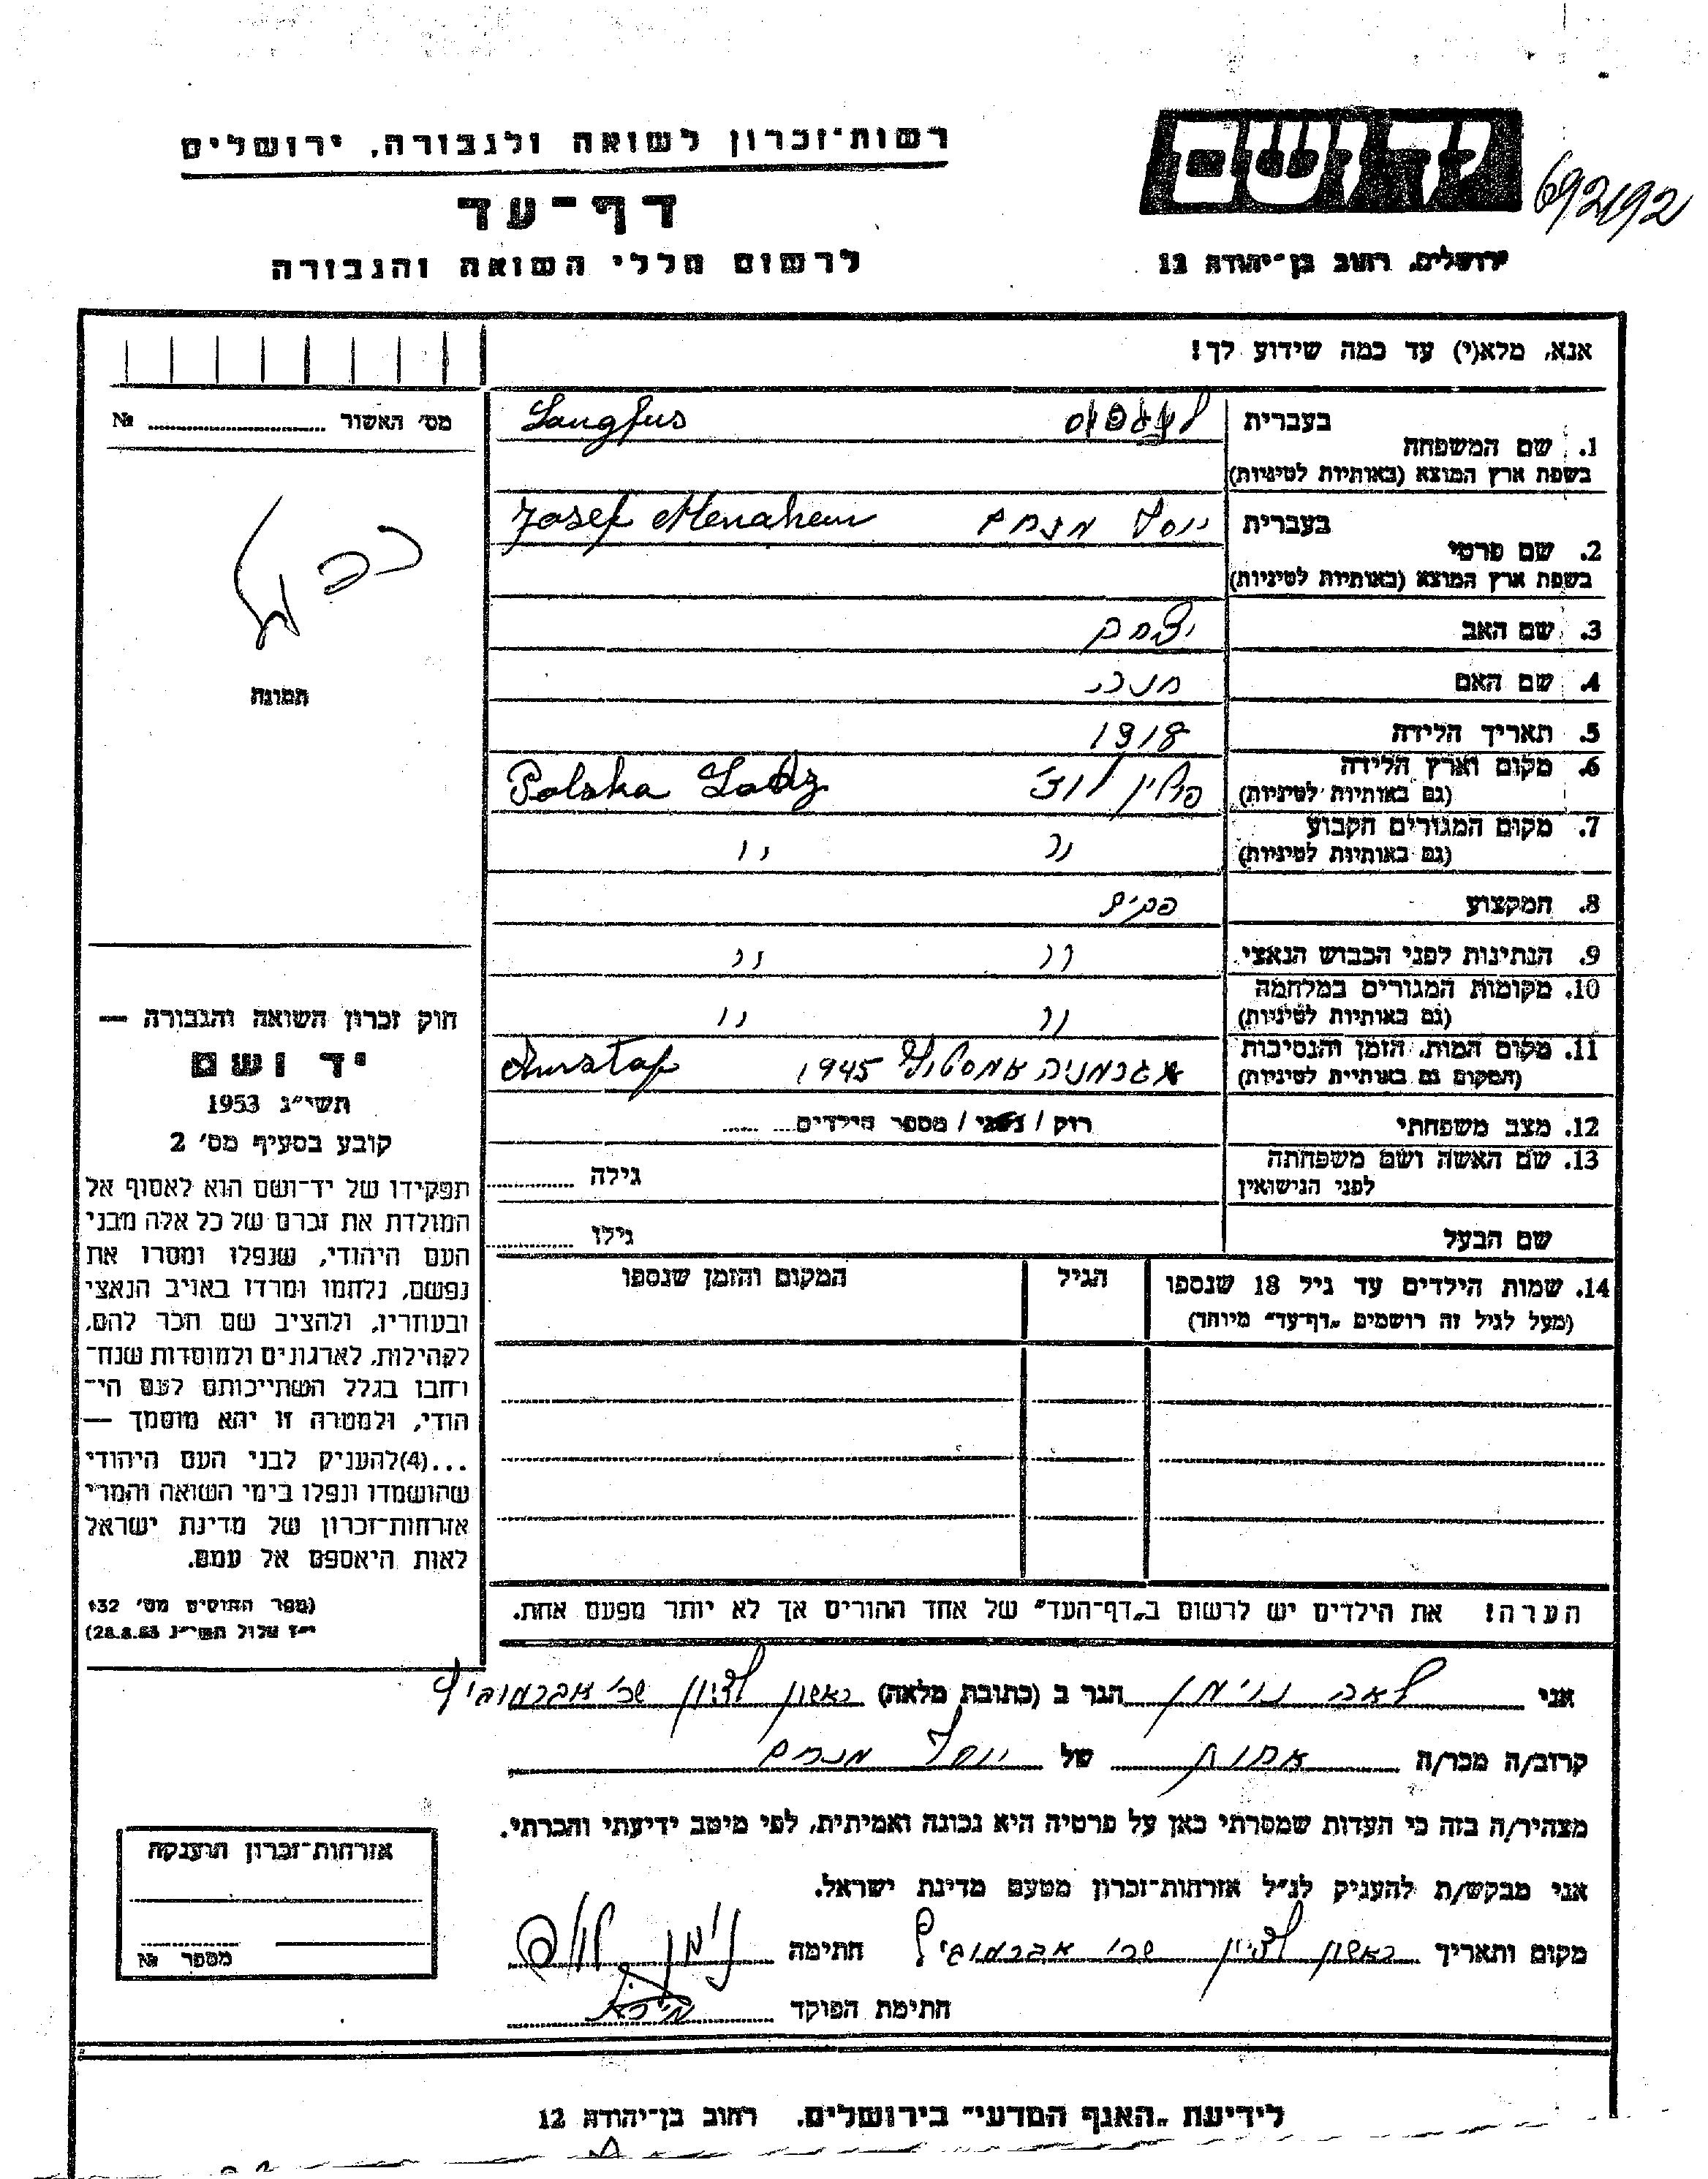 רשות־זכרון לשואה ולגבורה, ירושלים
דף־עד
לרשום חללי השואה והגבורה
יד ושם
692/92
ירושלים, רחוב בן־יהודה 12
אנא, מלא(י) עד כמה שידוע לך!
מס׳ האשור № ....................
תמונה
בעברית
1. שם המשפחה
בשפת ארץ המוצא (באותיות לטיניות)
לנגפוס Langfus
בעברית
2. שם פרטי
בשפת ארץ המוצא (באותיות לטיניות)
יוסף מנחם Josef Menahem
3. שם האב יצחק
4. שם האם חנה
5. תאריך הלידה 1918
6. מקום וארץ הלידה
(גם באותיות לטיניות)
פולין לודז׳ Polska Lodz
7. מקום המגורים הקבוע
(גם באותיות לטיניות)
״ ״
8. המקצוע פקיד
9. הנתינות לפני הכבוש הנאצי ״ ״
10. מקומות המגורים במלחמה
(גם באותיות לטיניות)
״ ״
11. מקום המות, הזמן והנסיבות
(המקום גם באותיות לטיניות)
1945
12. מצב משפחתי רווק / נשוי / מספר הילדים.... .....
13. שם האשה ושם משפחתה
לפני הנישואין
גילה ............
שם הבעל גילו ............
14. שמות הילדים עד גיל 18 שנספו
(מעל לגיל זה רושמים „דף־עד״ מיוחד)
הגיל
המקום והזמן שנספו
הערה! את הילדים יש לרשום ב„דף־העד״ של אחד ההורים אך לא יותר מפעם אחת.
חוק זכרון השואה והגבורה —
יד ושם
תשי״ג 1953
קובע בסעיף מס׳ 2
תפקידו של יד־ושם הוא לאסוף אל
המולדת את זכרם של כל אלה מבני
העם היהודי, שנפלו ומסרו את
נפשם, נלחמו ומרדו באויב הנאצי
ובעוזריו, ולהציב שם וזכר להם,
לקהילות, לארגונים ולמוסדות שנח־
רחבו בגלל השתייכותם לעם הי־
הודי, ולמטרה זו יהא מוסמך —
...(4)להעניק לבני העם היהודי
שהושמדו ונפלו בימי השואה והמרי
אזרחות־זכרון של מדינת ישראל
לאות היאספם אל עמם.
(ספר החוקים מס׳ 132
י״ז אלול תשי״ג 28.8.53)
אני לאה נוימן הגר ב (כתובת מלאה) ראשון לציון שכ׳ אברמוביץ
קרוב/ה מכר/ה אחות של יוסף מנחם
מצהיר/ה בזה כי העדות שמסרתי כאן על פרטיה היא נכונה ואמיתית, לפי מיטב ידיעתי והכרתי.
אני מבקש/ת להעניק לנ״ל אזרחות־זכרון מטעם מדינת ישראל.
מקום ותאריך ראשון לציון שכ׳ אברמוביץ חתימה
חתימת הפוקד
אזרחות־זכרון הוענקה
מספר №
לידיעת „האגף המדעי״ בירושלים, רחוב בן־יהודה 12